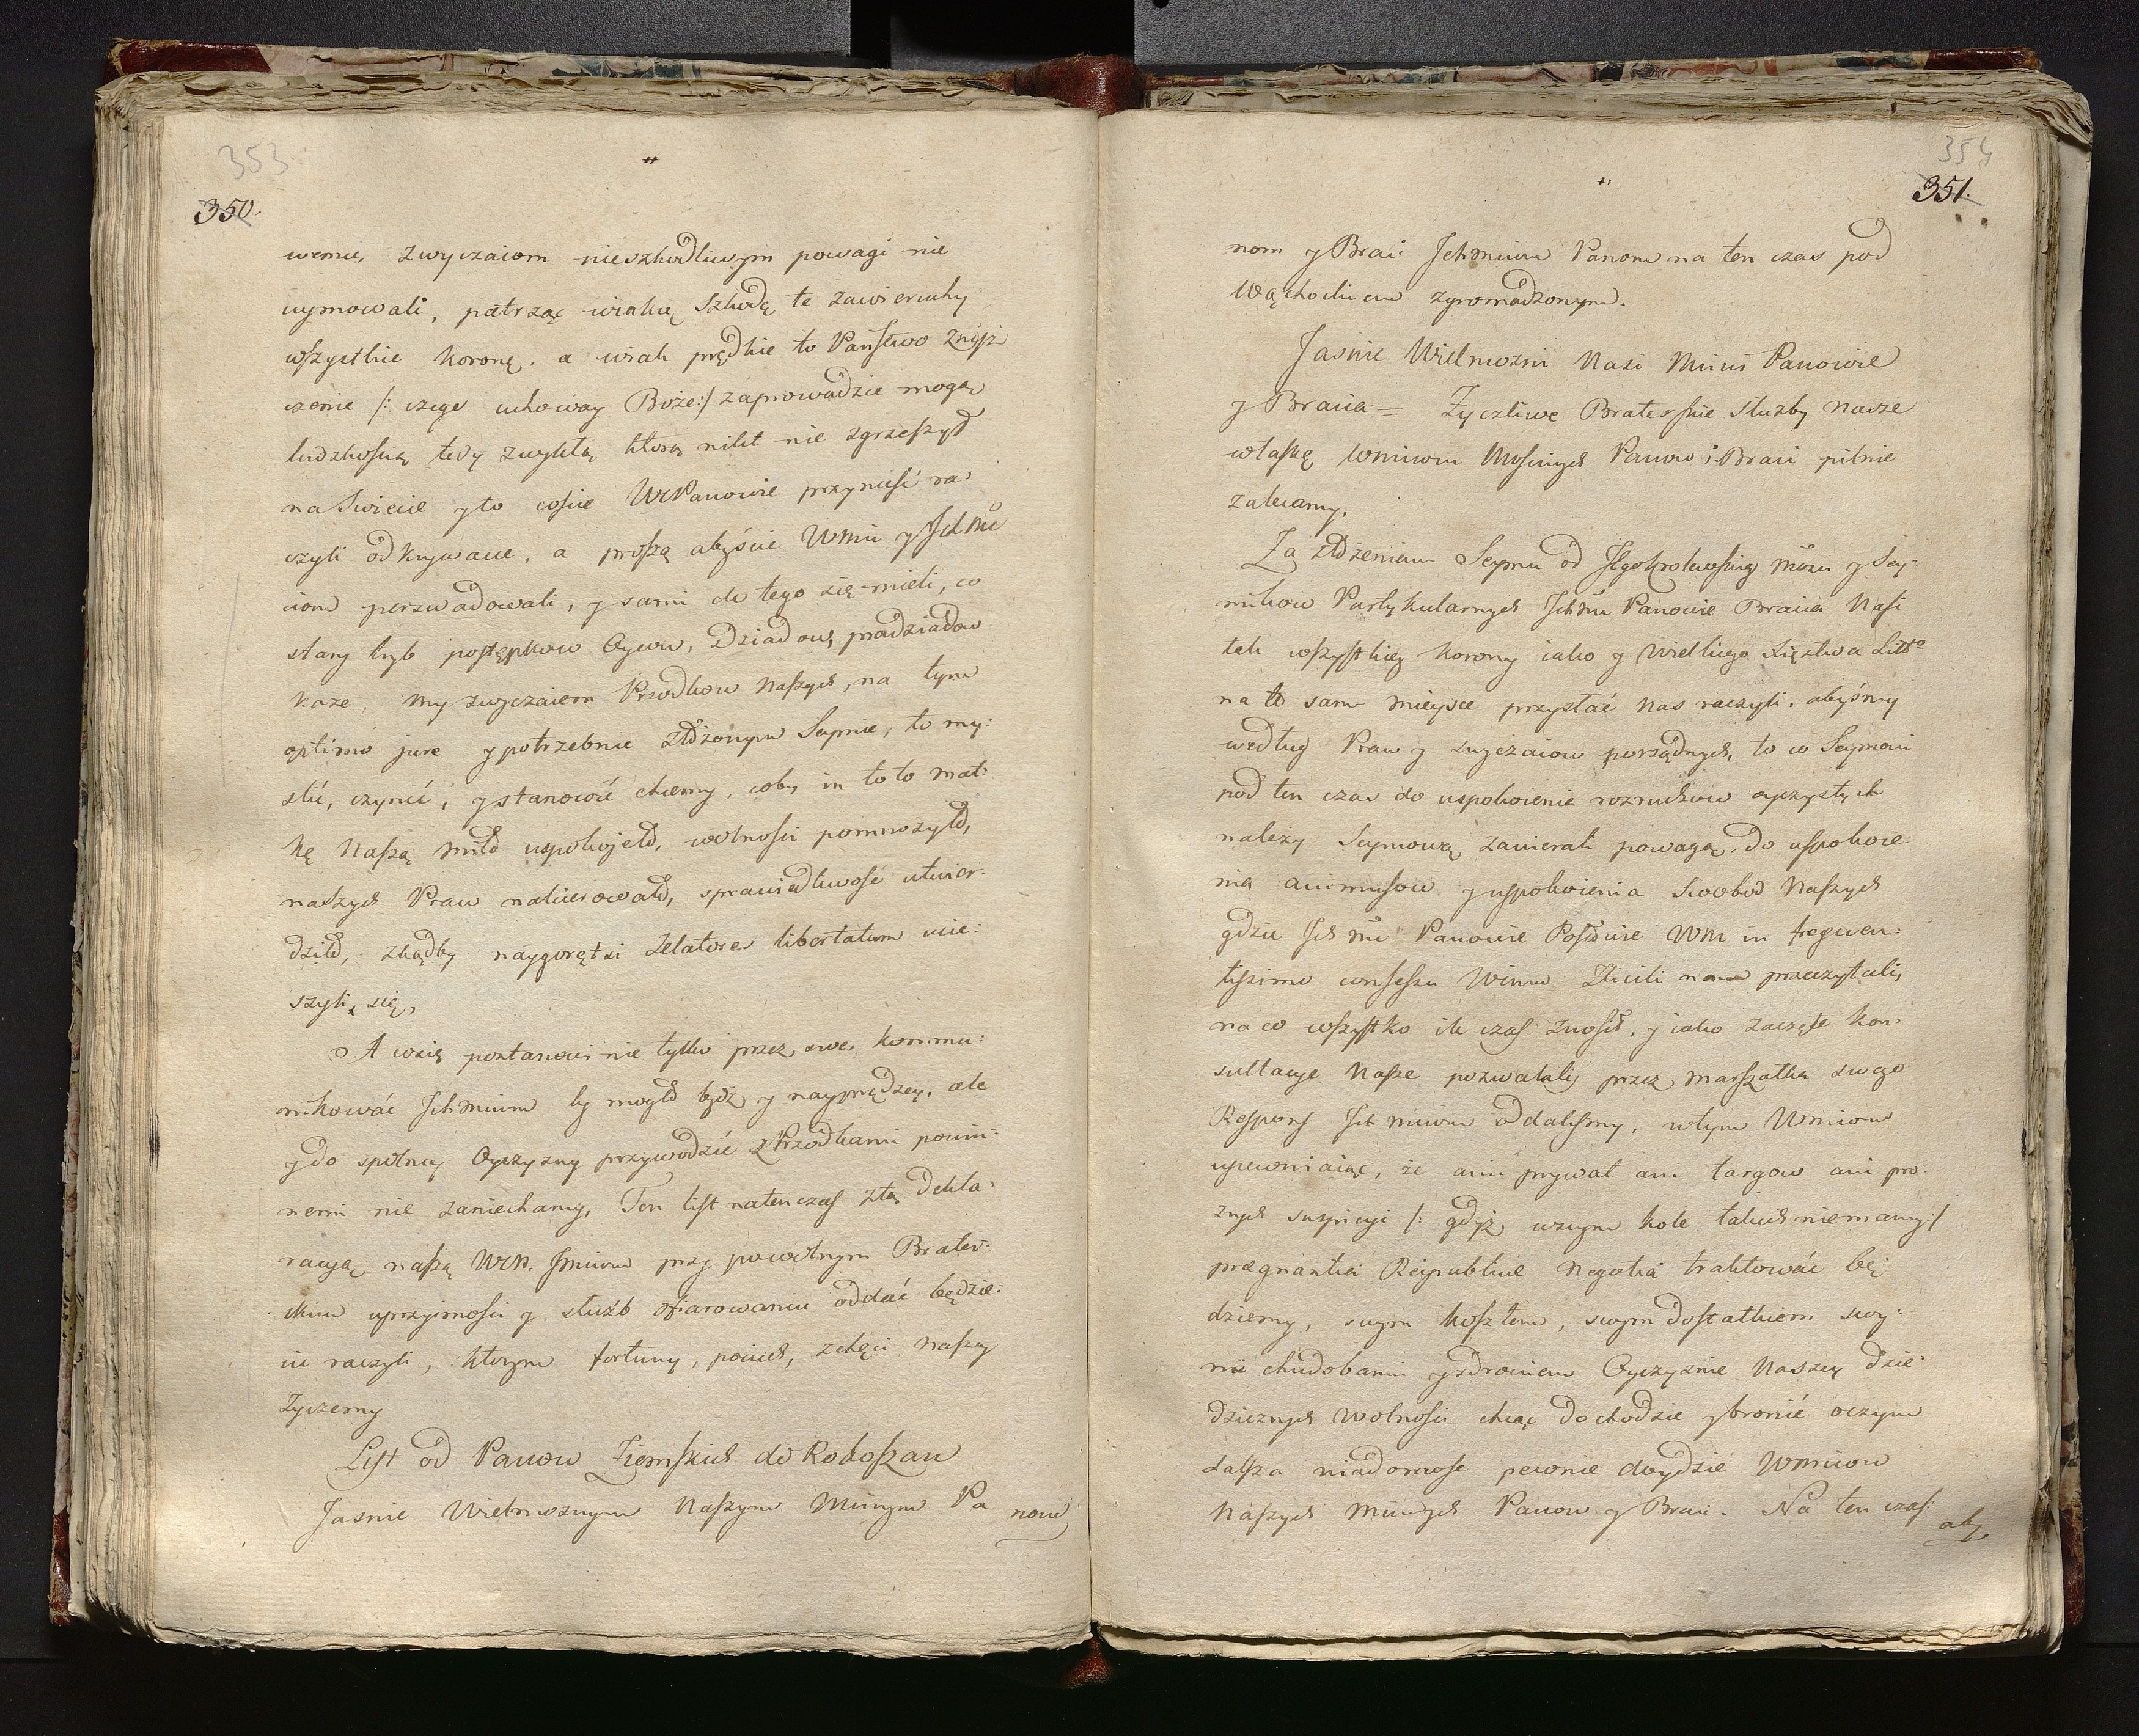 353
350.
wemu, zwyczaiom nieszkodliwym powagi nie
uymowali, patrząc wiaką szkodę te zawieruchy
wszystkie Koronę, a wiak prędkie to Państwo znisz
czenie /: czego uchoway Boże:/ zaprowadzie mogą,
ludzkością tedy zwykłą którą nikt nie zgrzeszył
na Swiecie y to cosie WMPanowie przynieść ra:
czyli odkrywacie, a proszą abyście Wmci y Ich Mć
ciom perswadowali, y sami do tego się mieli, co
stary tryb postępkow Oycow, Dziadow, pradziadow
każe, my zwyczaiem Przodkow Naszych, na tym
optimo jure y potrzebnie złożonym Seymie, to my:
slić, czynić, y stanowić chcemy, coby in toto mat:
kę Naszą miłą uspokojeło, wolności pomnożyło,
naszych Praw ratierowało, sprawiedliwość utwier:
dziło, zkądby naygorętsi zelatores libertatum ucie:
szyli się,
A cosię postanowi nie tylko przez swe, kommu:
nikować Ichmciom by mogło bydź y nayprędzey, ale
y do spólney Oyczyzny przywodzić z Przodkami powin:
nemi nie zaniechamy, Ten list natenczas ztą dekla:
racyą naszą WM. Jmciom przy powolnym Brater:
skim uprzyimości y służb ofiarowaniu oddać będzie:
cie raczyli, którym fortuny, pociech, z chęci naszey
Zyczemy
List od Panow Ziemskich do Rokoszan
Jasnie Wielmoznym Naszym Mciwym Pa
nom
354
351.
nom y Braci Ichmciom Panom na ten czas pod
Wąchockiem zgromadzonym.
Jasnie Wielmozni Nasi Mciwi Panowie
y Bracia = Zyczliwe Braterskie sluzby nasze
właskę Wmciom Mosciwych Panow i Braci pilnie
zalecamy.
Za złożeniem Seymu od JEgokrolewskiey Mości y Sey:
mikow Partykularnych Ichmć Panowie Bracia Nasi
tak wszystkiey Korony iako y Wielkiego Xięztwa Litto
na to samo mieysce przysłać nas raczyli, abyśmy
według Praw y zwyczaiow porządnych, to co Seymowi
pod ten czas do uspokoienia rozruchow oyczystych
należy Seymową zawierali powagą, do uspokoie:
nia animusow y uspokoienia Swobod Naszych
gdzie Ich mć Panowie Posłowie WM in frequen:
tissimo consessu Wmciow Zlicili nam przeczytali,
na co wszystko ile czas znosił, y iako zaczęte Kon:
sultacye Nasze pozwalali, przez Marszałka swego
Respons Ich mciom oddaliśmy, w tym Wmciow
upewniaiąc, że ani prywat ani targow ani pro:
znych suspicyi /: gdyż w swym kole takich niemamy:/
pragnantia Reipublicae Negotia traktować bę:
dziemy, swym kosztem, swym dostatkiem swy:
mi chudobami y zdrowiem Oyczyznie Naszey dzie:
dzicznych wolności chcąc dochodzie y bronić o czym
dalsza wiadomosc pewnie doydzie Wmciow
Naszych Mciwych Panow y Braci. Na ten czas:
aby